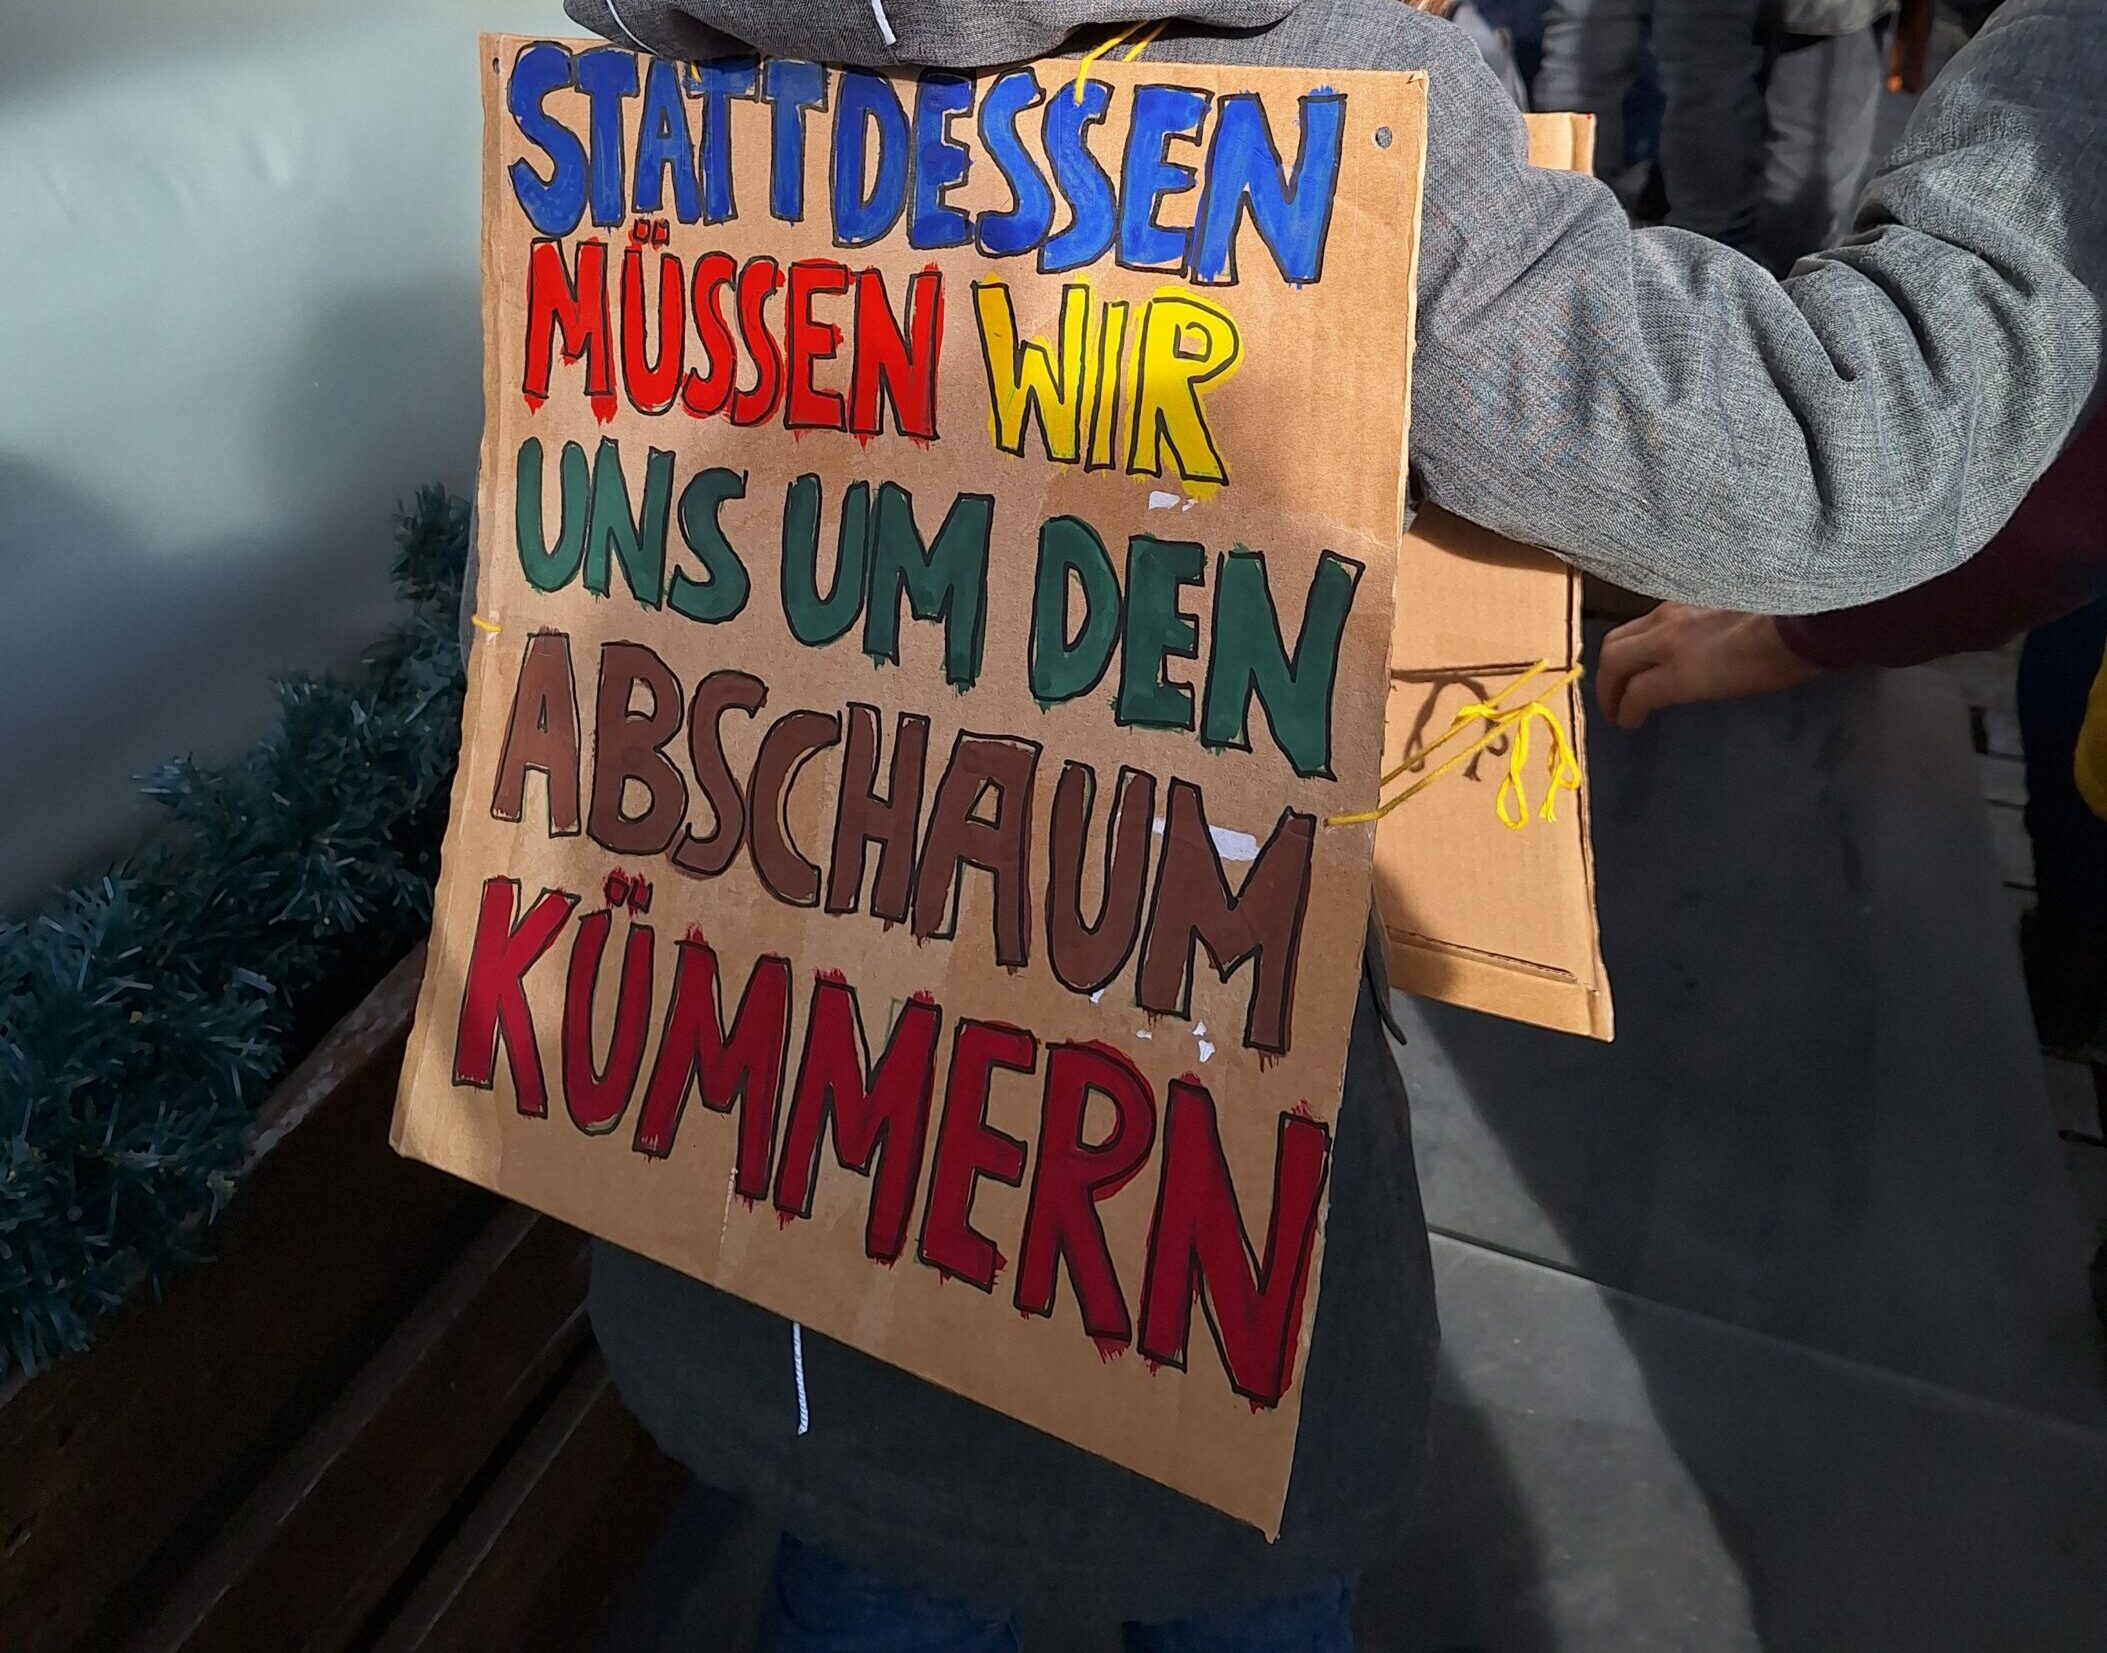 STATTDESSEN
MÜSSEN WIR
UNS UM DEN
ABSCHAUM
KÜMMERN